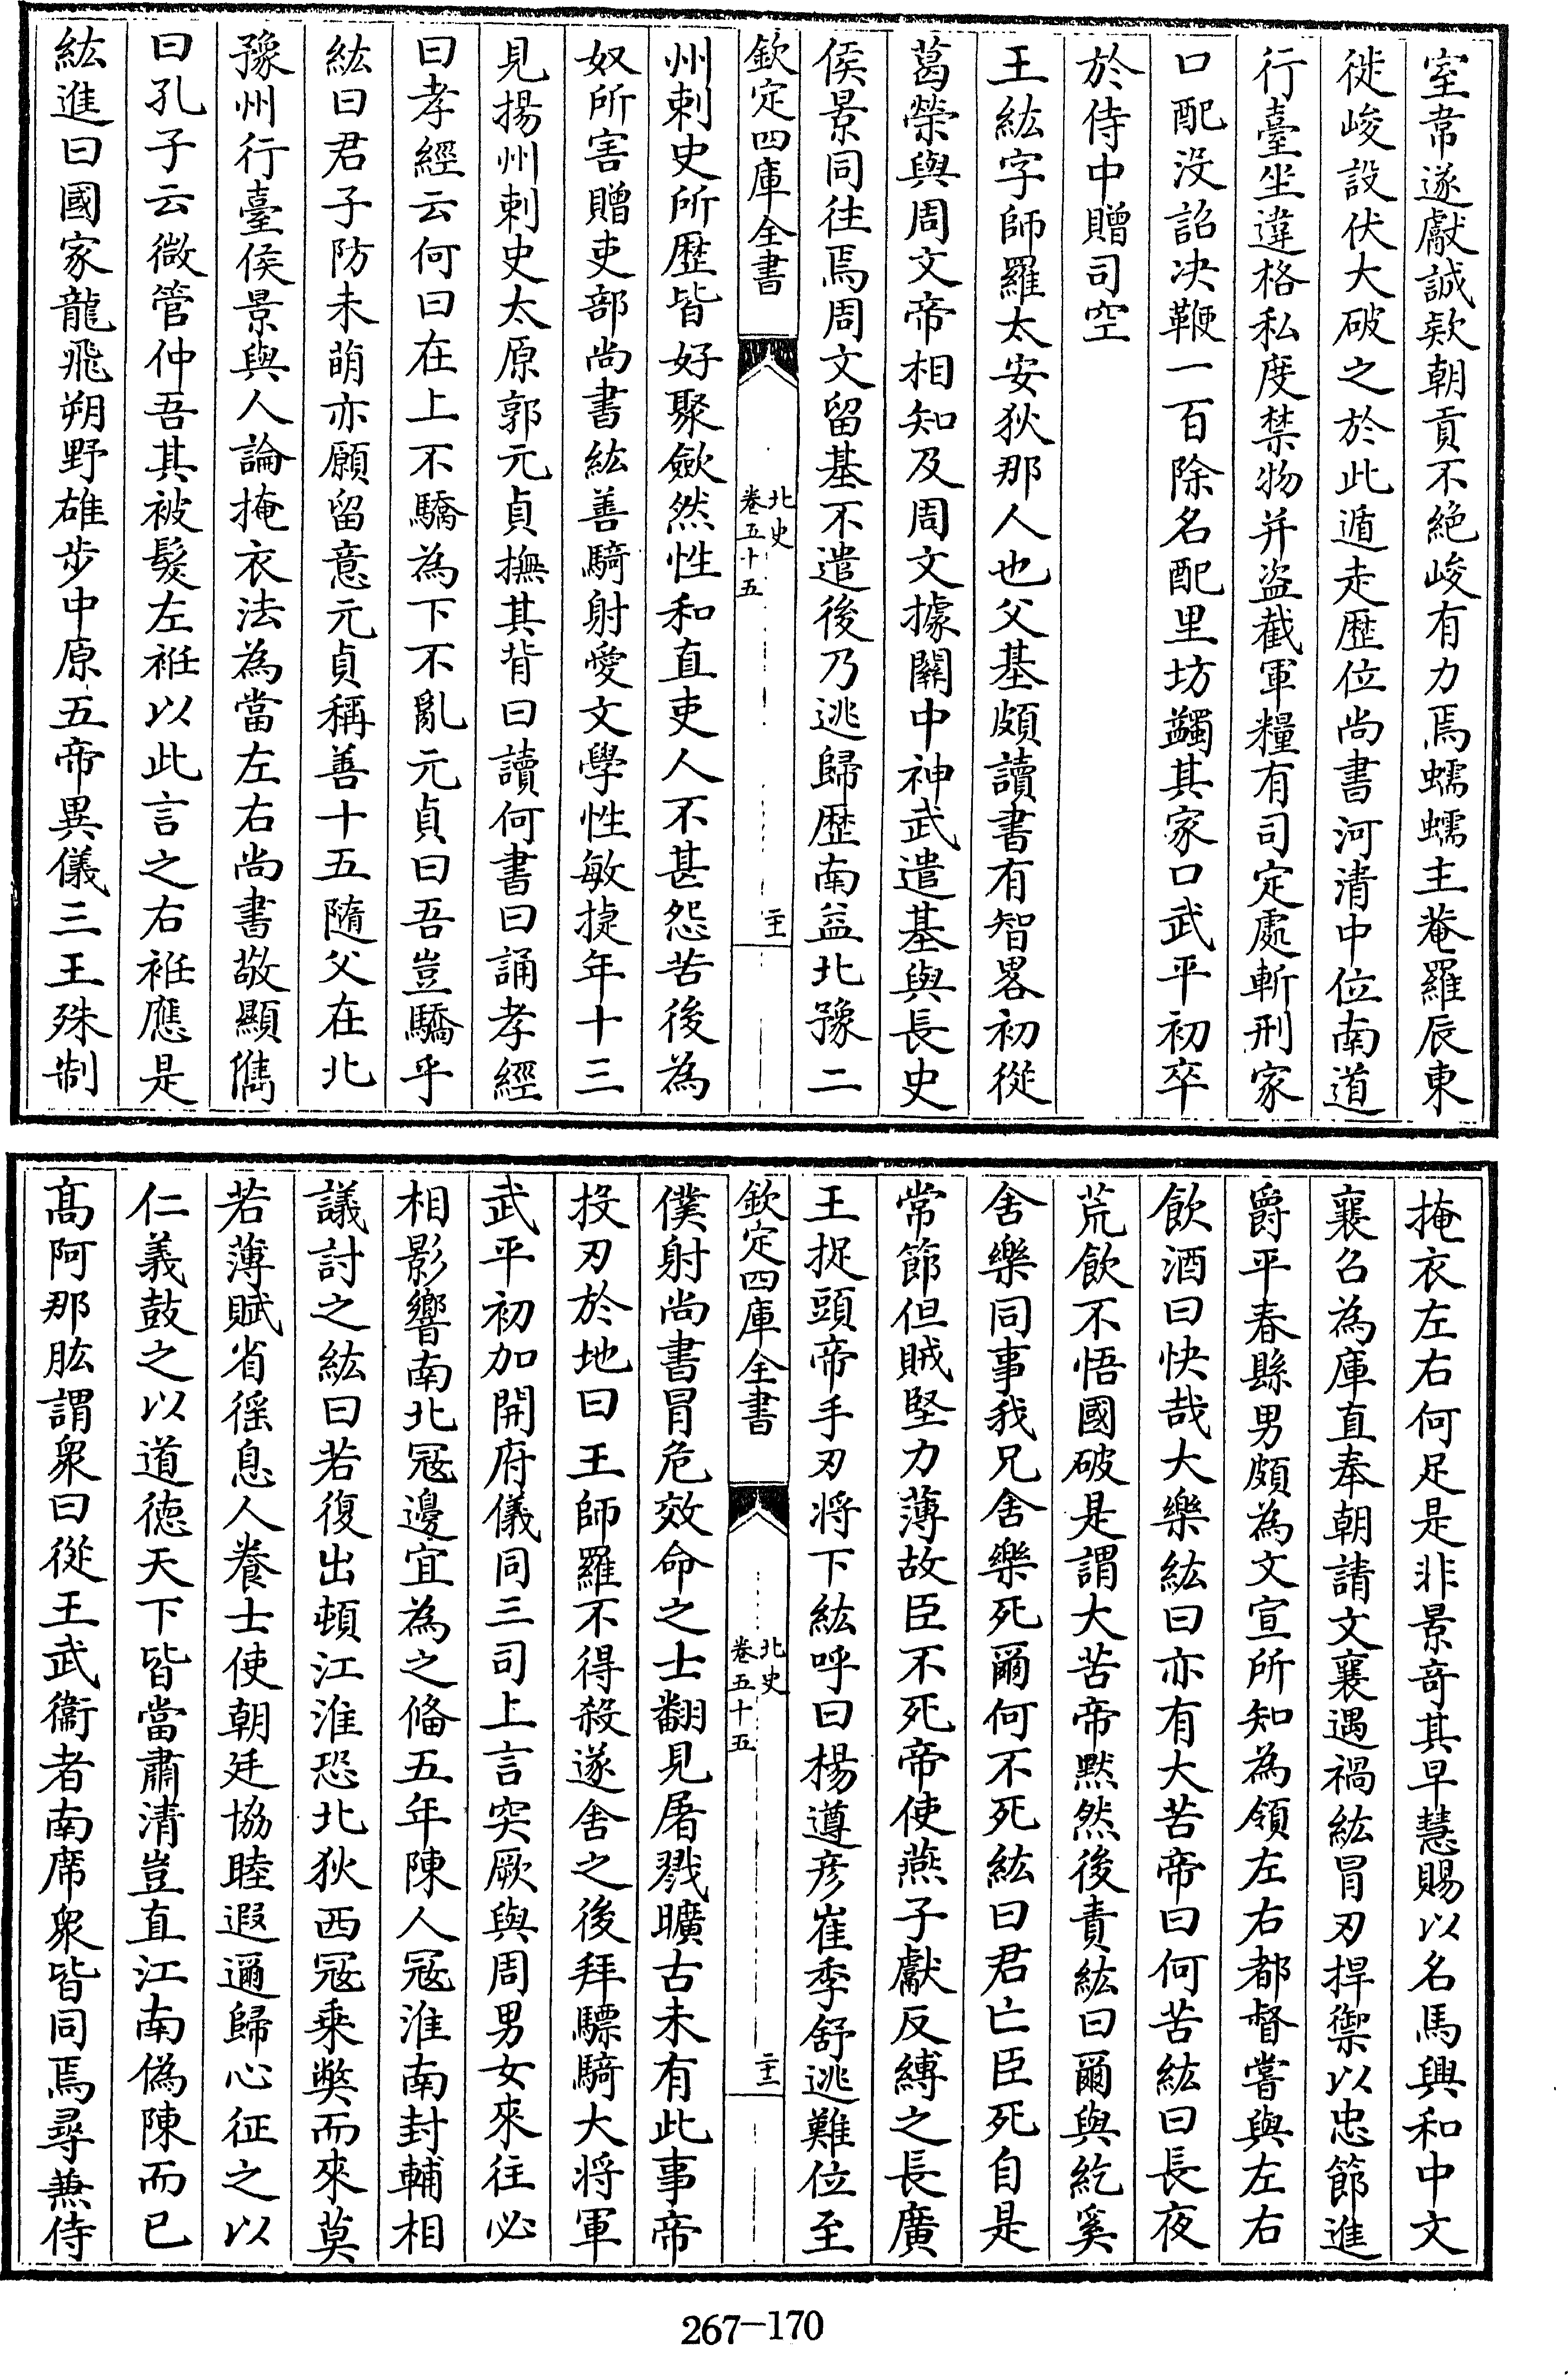 室韋遂獻誠欵朝貢不絶峻有力焉蠕蠕主菴羅辰東
徙峻設伏大破之於此遁走歴位尚書河清中位南道
行臺坐違格私度禁物并盗截軍糧有司定處斬刑家
口配没詔决鞭一百除名配甲坊蠲其家口武平初卒
於侍中贈司空
王紘字師羅太安狄那人也父基頗讀書有智畧初從
葛榮與周文帝相知及周文據關中神武遣基與長史
侯景同往焉周文留基不遣後乃逃歸歴南益北豫二
欽定四庫全書
北史
卷五十五
二十一
州刺史所歴皆好聚歛然性和直吏人不甚怨苦後為
奴所害贈吏部尚書紘善騎射愛文學性敏捷年十三
見揚州刺史太原郭元貞撫其背曰讀何書曰誦孝經
曰孝經云何曰在上不驕為下不亂元貞曰吾豈驕乎
紘曰君子防未萌亦願留意元貞稱善十五隨父在北
豫州行臺侯景與人論掩衣法為當左右尚書敬顯儁
曰孔子云微管仲吾其被髮左袵以此言之右袵應是
紘進曰國家龍飛朔野雄步中原五帝異儀三王殊制
掩衣左右何足是非景竒其早慧賜以名馬興和中文
襄召為庫直奉朝請文襄遇禍紘冒刃捍禦以忠節進
爵平春縣男頗為文宣所知為領左右都督嘗與左右
飲酒曰快哉大樂紘曰亦有大苦帝曰何苦紘曰長夜
荒飲不悟國破是謂大苦帝黙然後責紘曰爾與紇奚
舍樂同事我兄舍樂死爾何不死紘曰君亡臣死自是
常節但賊堅力薄故臣不死帝使燕子獻反縛之長廣
王捉頭帝手刃将下紘呼曰楊遵彦崔季舒逃難位至
欽定四庫全書
北史
卷五十五
二十二
僕射尚書冒危效命之士翻見屠戮曠古未有此事帝
投刃於地曰王師羅不得殺遂舍之後拜驃騎大将軍
武平初加開府儀同三司上言突厥與周男女來往必
相影響南北宼邊宜為之備五年陳人宼淮南封輔相
議討之紘曰若復出頓江淮恐北狄西宼乗獘而來莫
若薄賦省徭息人養士使朝廷協睦遐邇歸心征之以
仁義鼓之以道德天下皆當肅清豈直江南偽陳而已
髙阿那肱謂衆曰從王武衞者南席衆皆同焉尋兼侍
267-170